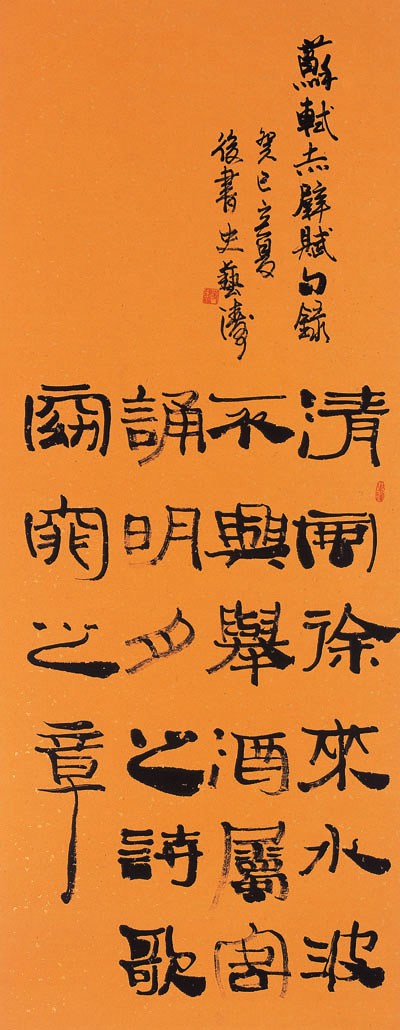 蘇軾赤壁賦句錄
癸巳立夏
後書史藝濤
清風徐來水波
不興舉酒屬客
誦明月之詩歌
窈窕之章